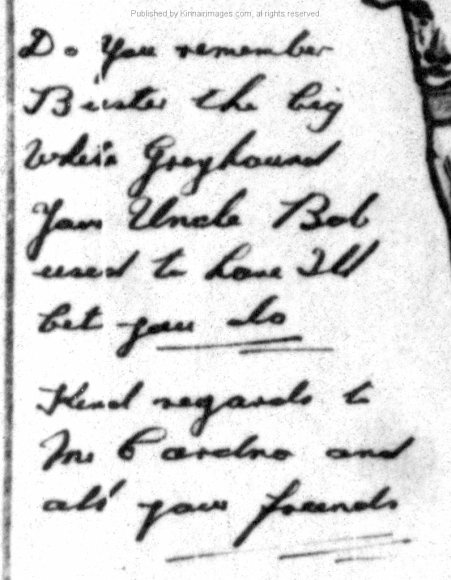 Published by Kinnairimages.com, all rights reserved.
Do You remember
Buster the big
White Greyhound
Your Uncle Bob
used to have I'll
bet you do
Kind regards to
Mr Cardno and
all your friends